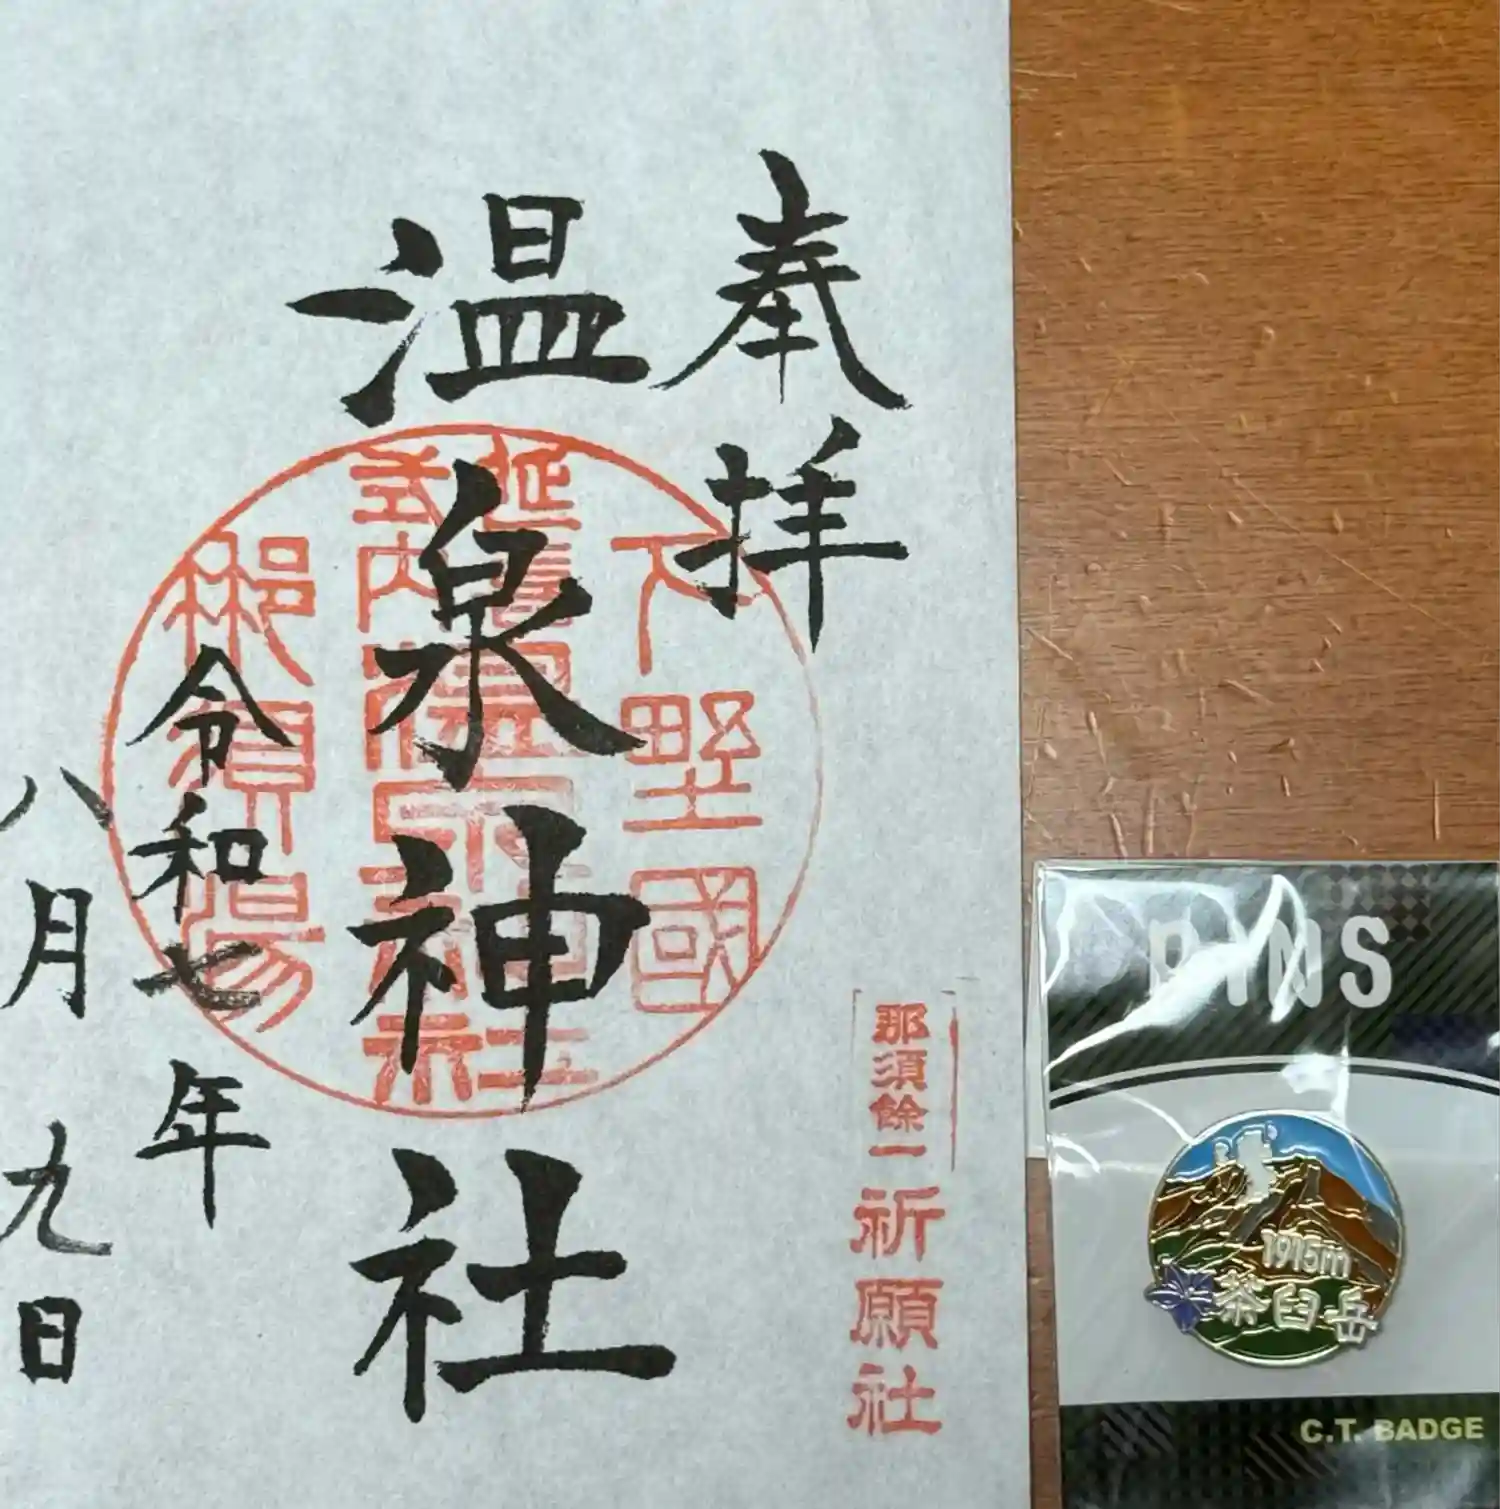 奉拝
温泉神社
令和七年
八月九日
下野國
延喜
式内
温泉神社
那須湯
那須餘一
祈願社
PINS
1915m
茶臼岳
C.T. BADGE